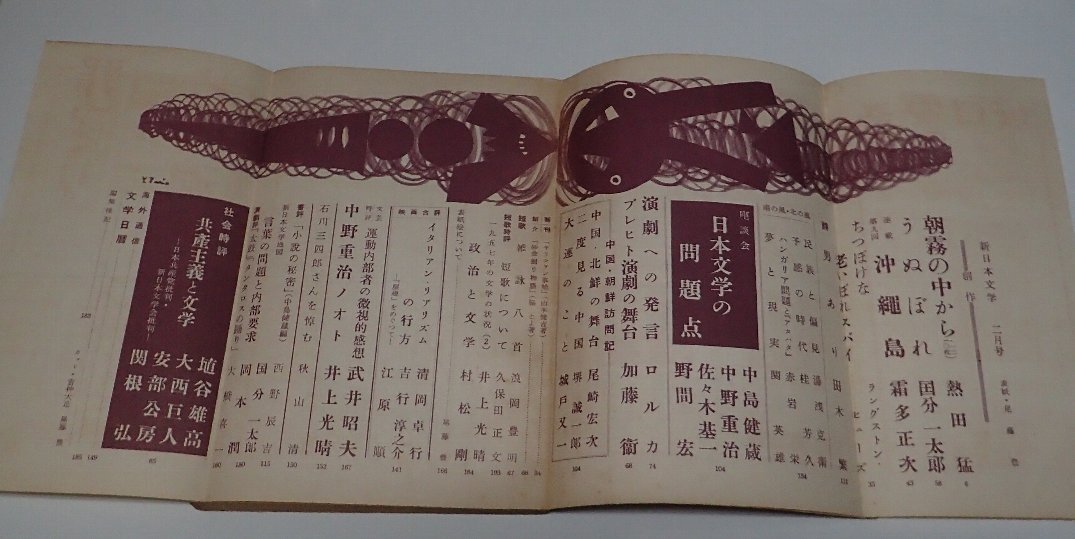 新日本文学 二月号
表紙・尾藤豊
創作
朝霧の中から(七八枚) 熱田猛 6
うぬぼれ 国分一太郎 58
連載 第九回 沖縄島 霜多正次 43
ちっぽけな老いぼれスパイ ラングストン・ヒューズ 33
詩 男あり 田木繁 131
南の風・北の風
民族と偏見 湯浅克衛
予感の時代 桂芳久
(ハンガリア問題とアバタ) 赤岩栄
夢と現実 関英雄
134
座談会
日本文学の問題点
中島健蔵
中野重治
佐々木基一
野間宏
104
演劇への発言 ロルカ 74
ブレヒト演劇の舞台 加藤衞 68
中国・朝鮮訪問記
中国・北鮮の舞台 尾崎宏次
二度見る中国 堺誠一郎
大連のこと 城戸又一
104
短歌 雑詠八首 渡岡豊
短歌時評 短歌について 久保田正文 67
一九五七年の文学の状況(2) 井上光晴 193
政治と文学 村松剛 184
表紙絵について 尾藤豊 166
映画合評
イタリアン・リアリズムの行方 清岡卓行
吉行淳之介
江原順
141
文芸時評 運動内部者の微視的感想 武井昭夫 167
中野重治ノオト 井上光晴 152
石川三四郎さんを悼む 秋山清 150
書評 「小説の秘密」(中島健蔵編) 西野辰吉 115
新日本文学週間
言葉の問題と内部要求 国分一太郎
岡本潤 180
大橋喜一 160
社会時評
共産主義と文学
―日本共産党批判・新日本文学会批判―
埴谷雄高
大西巨人
安部公房
関根弘
85
海外通信
文学日暦
編集後記
182
149
185
カット・書藤大星 尾藤豊